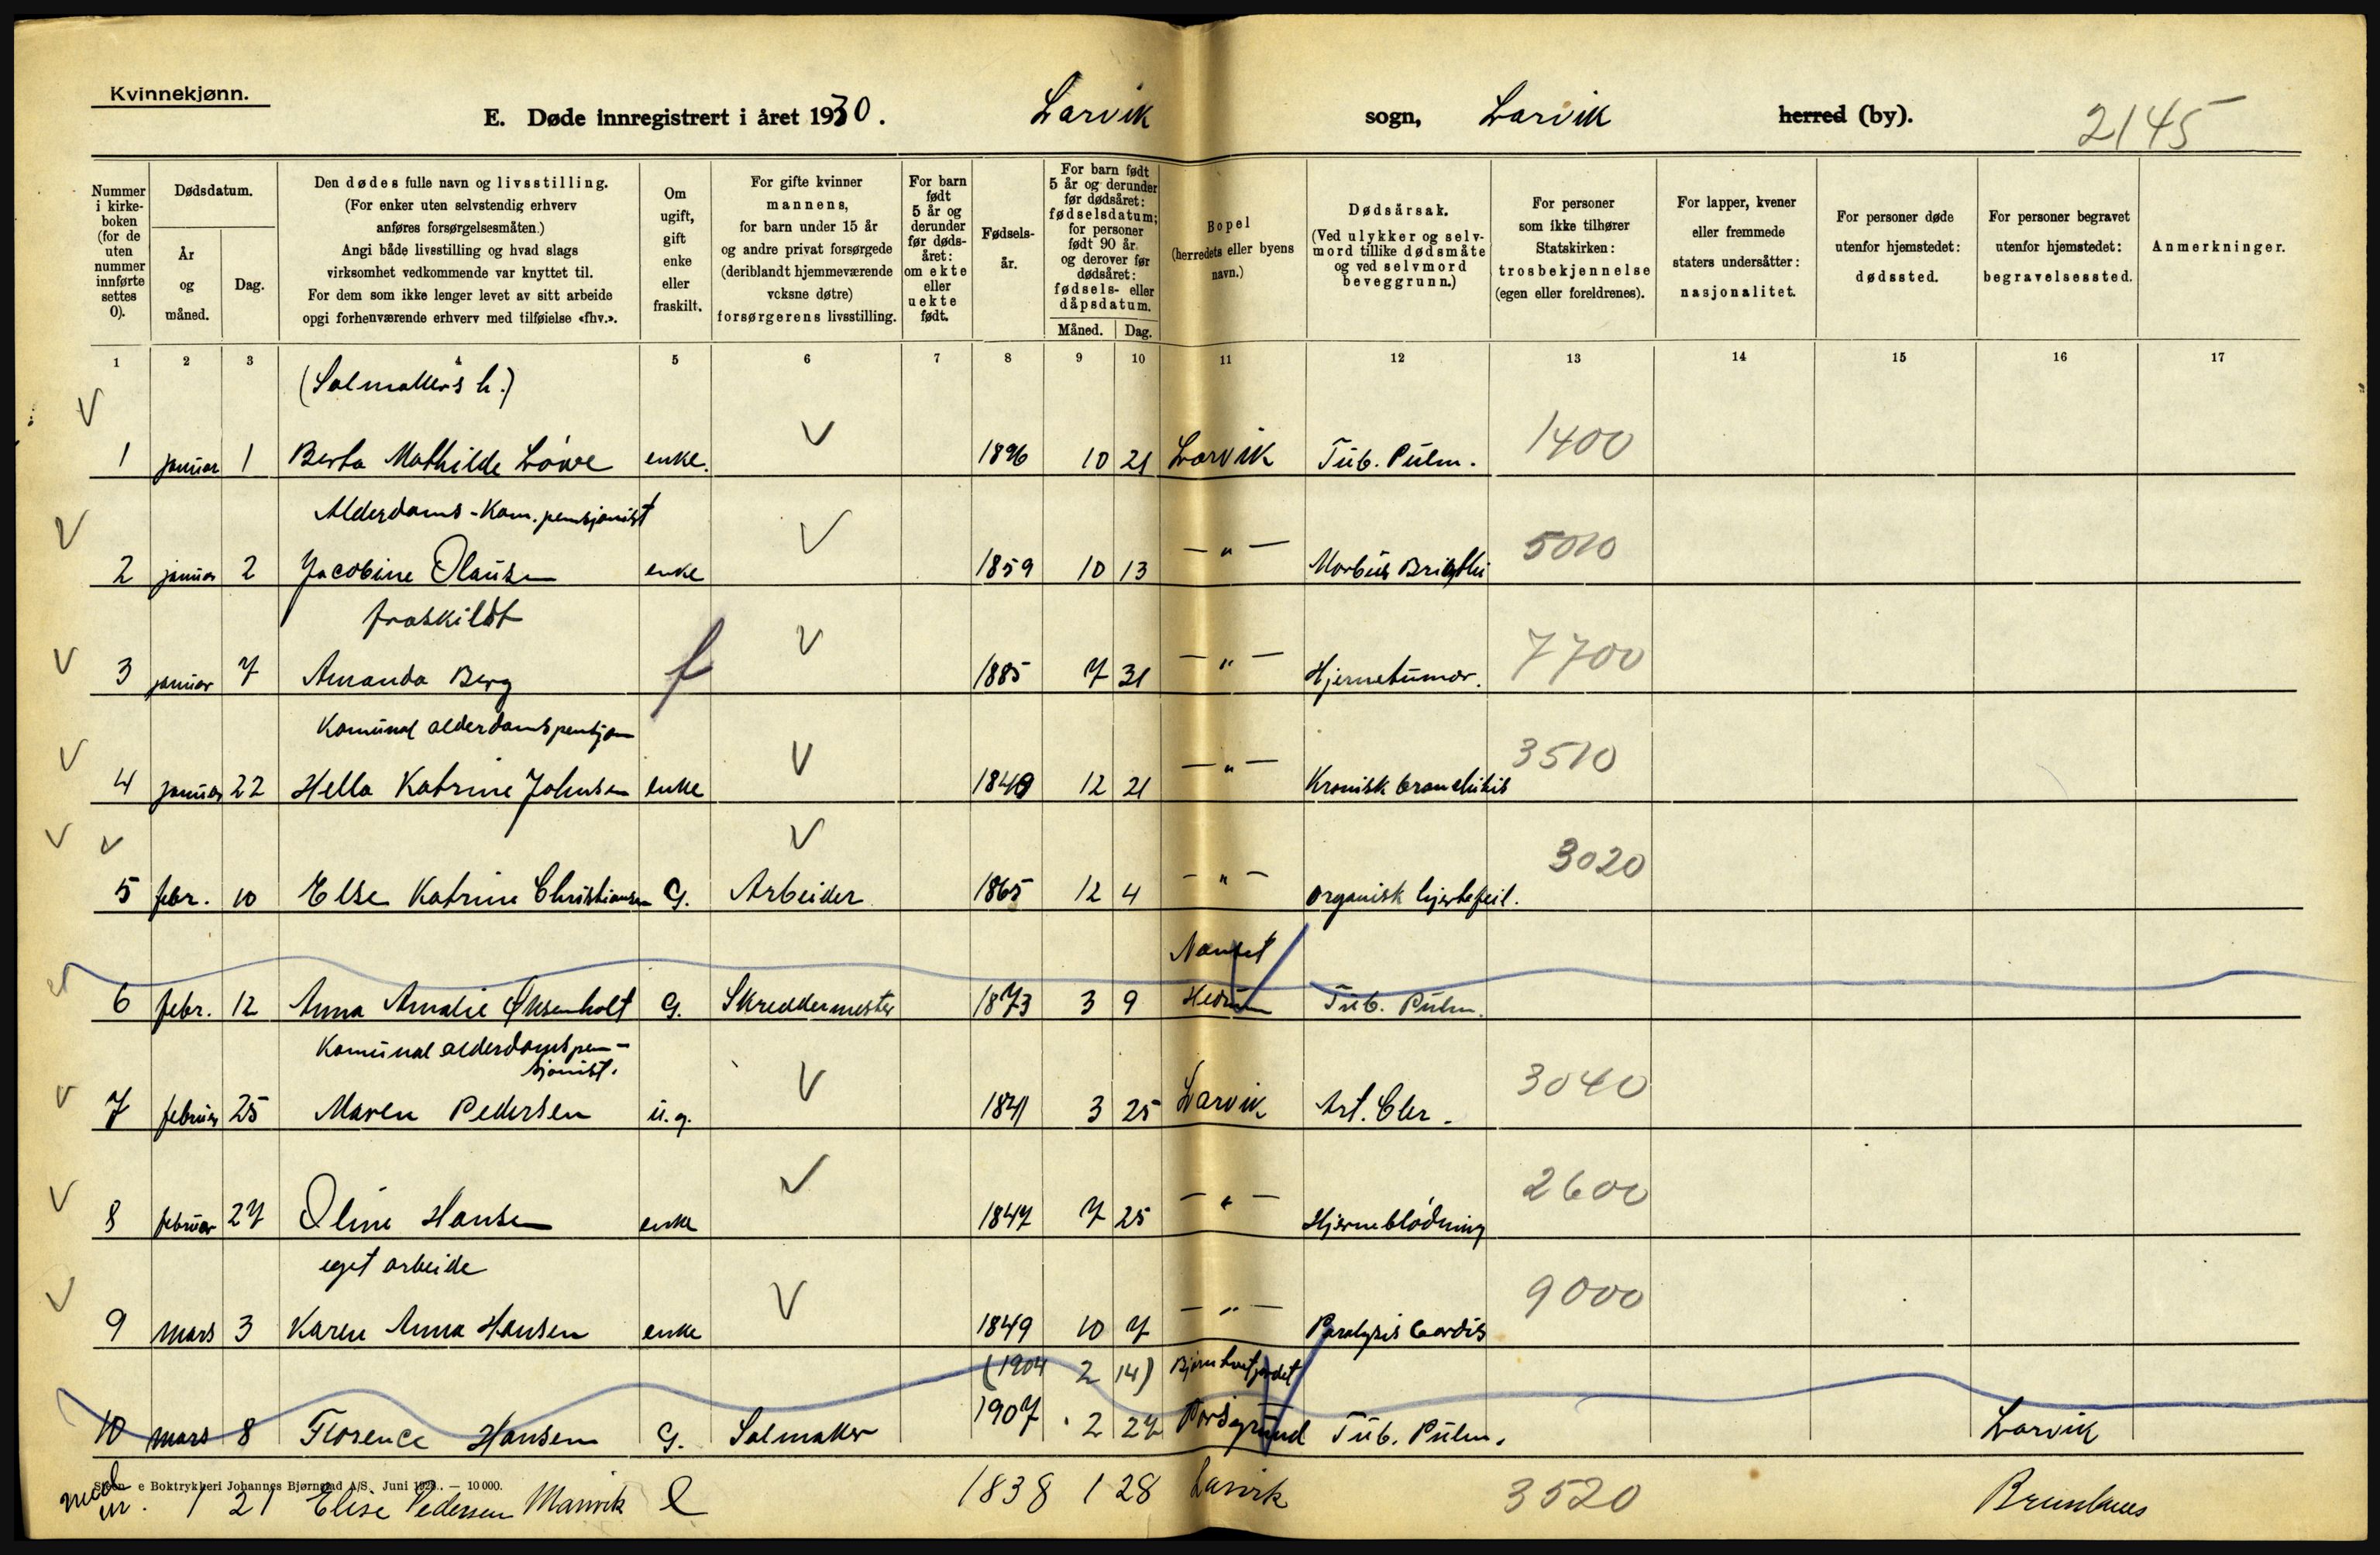 Kvinnekjønn.
E. Døde innregistrert i året 1930. Larvik sogn, Larvik herred (by). 2145
Nummer i kirkeboken (for de uten nummer innførte settes 0).
Dødsdatum.
År og måned.
Dag.
Den dødes fulle navn og livsstilling.
(For enker uten selvstendig erhverv
anføres forsørgelsesmåten.)
Angi både livsstilling og hvad slags
virksomhet vedkommende var knyttet til.
For dem som ikke lenger levet av sitt arbeide
opgi forhenværende erhverv med tilføielse «fhv.».
Om ugift, gift enke eller fraskilt.
For gifte kvinner
mannens,
for barn under 15 år
og andre privat forsørgede
(deriblandt hjemmeværende
vcksne døtre)
forsørgerens livsstilling.
For barn født 5 år og derunder før dødsåret: om ekte eller uekte født.
Fødselsår.
For barn født 5 år og derunder før dødsåret: fødselsdatum; for personer født 90 år og derover før dødsåret: fødsels- eller dåpsdatum.
Måned. Dag.
Bopel
(herredets eller byens
navn.)
Dødsårsak.
(Ved ulykker og selvmord tillike dødsmåte og ved selvmord beveggrunn.)
For personer
som ikke tilhører
Statskirken:
trosbekjennelse
(egen eller foreldrenes).
For lapper, kvener
eller fremmede
staters undersåtter:
nasjonalitet.
For personer døde
utenfor hjemstedet:
dødssted.
For personer begravet
utenfor hjemstedet:
begravelsessted.
Anmerkninger.
1 2 3 4 5 6 7 8 9 10 11 12 13 14 15 16 17
(Salmakers h.)
1 januar 1 Berta Mathilde Löwe enke. 1896 10 21 Larvik Tub. Pulm. 1400
Alderdoms-Kom. pensjonist
2 januar 2 Jacobine Olausen enke 1859 10 13 — " — Morbus Brigthi 5010
fraskildt
3 januar 7 Amanda Berg f 1885 7 31 — " — Hjernetumor. 7700
Komunal alderdomspensjon
4 januar 22 Hella Katrine Johnsen enke 1849 12 21 — " — Kronisk bronchitis 3510
5 febr. 10 Else Katrine Christiansen G. Arbeider 1865 12 4 — " — organisk hjertefeil. 3020
Nanset
6 febr. 12 Anna Amalie Øksenholt G. Skreddermester 1873 3 9 Hedrum Tub. Pulm.
Komunal alderdomspen-
sjonist.
7 februar 25 Maren Pedersen u.g. 1841 3 25 Larvik Art. Cler. 3040
8 februar 27 Oline Hansen enke 1847 7 25 — " — Hjerneblödning 2600
eget arbeide
9 mars 3 Karen Anna Hansen enke 1849 10 7 — " — Paralysis Cordis 9000
(1904 2 14)
10 mars 8 Florence Hansen G. Salmaker 1907 2 27 Porsgrund Tub. Pulm. Larvik
e Boktrykkeri Johannes Bjørnstad A/S. Juni 192 . — 10 000.
1 21 Elise Pedersen Manvik e 1838 1 28 Larvik 3520 Brunlanes